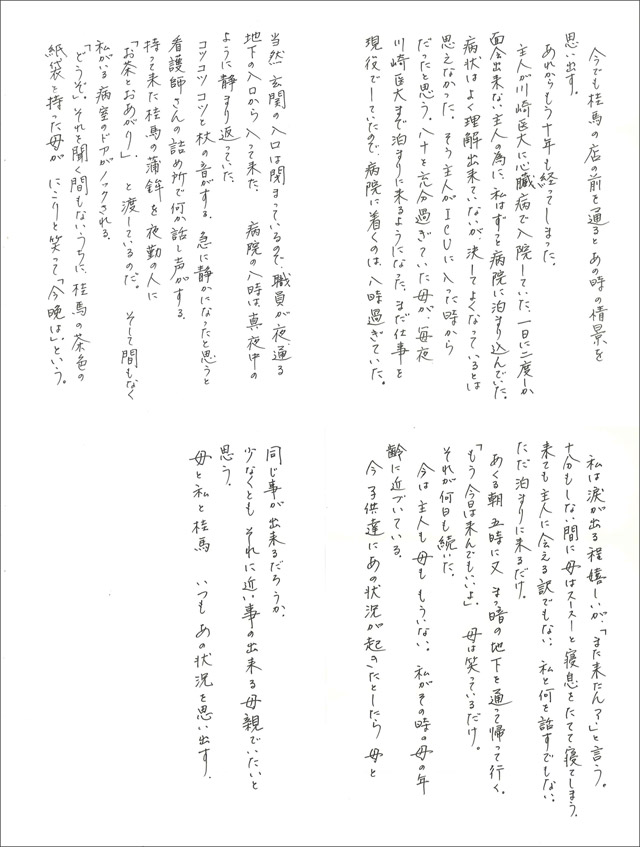 今でも桂馬の店の前を通るとあの時の情景を
思い出す。
あれからもう十年も経ってしまった。
主人が川崎医大に心臓病で入院していた。一日に二度しか
面会出来ない主人の為に、私はずっと病院に泊まり込んでいた。
病状はよく理解出来ていないが決してよくなっているとは
思えなかった。そう主人がICUに入った時から
だったと思う。八十を充分過ぎていた母が、毎夜
川崎医大まで泊まりに来るようになった。まだ仕事を
現役でしていたので、病院に着くのは、八時過ぎていた。
当然玄関の入口は閉まっているので、職員が夜通る
地下の入口から入って来た。 病院の八時は、真夜中の
ように静まり返っていた。
コツコツコツと杖の音がする。急に静かになったと思うと
看護師さんの詰め所で何か話し声がする。
持って来た桂馬の蒲鉾を夜勤の人に
「お茶とおあがり」 と渡しているのだ。 そして間もなく
私がいる病室のドアがノックされる。
「どうぞ」それを聞く間もないうちに、桂馬の茶色の
紙袋を持った母が にこりと笑って「今晩は」という。
私は涙が出る程嬉しいが、「また来たん?」と言う。
十分もしない間に母はスースーと寝息をたてて寝てしまう。
来ても主人に会える訳でもない。私と何を話すでもない。
ただ泊まりに来るだけ。
あくる朝五時に又まっ暗の地下を通って帰って行く。
「もう今日は来んでもいいよ」 母は笑っているだけ。
それが何日も続いた。
今は主人も母ももういない。私がその時の母の年
齢に近づいている。
今子供達にあの状況が起きたとしたら母と
同じ事が出来るだろうか。
少なくともそれに近い事の出来る母親でいたいと
思う。
母と私と桂馬 いつもあの状況を思い出す。